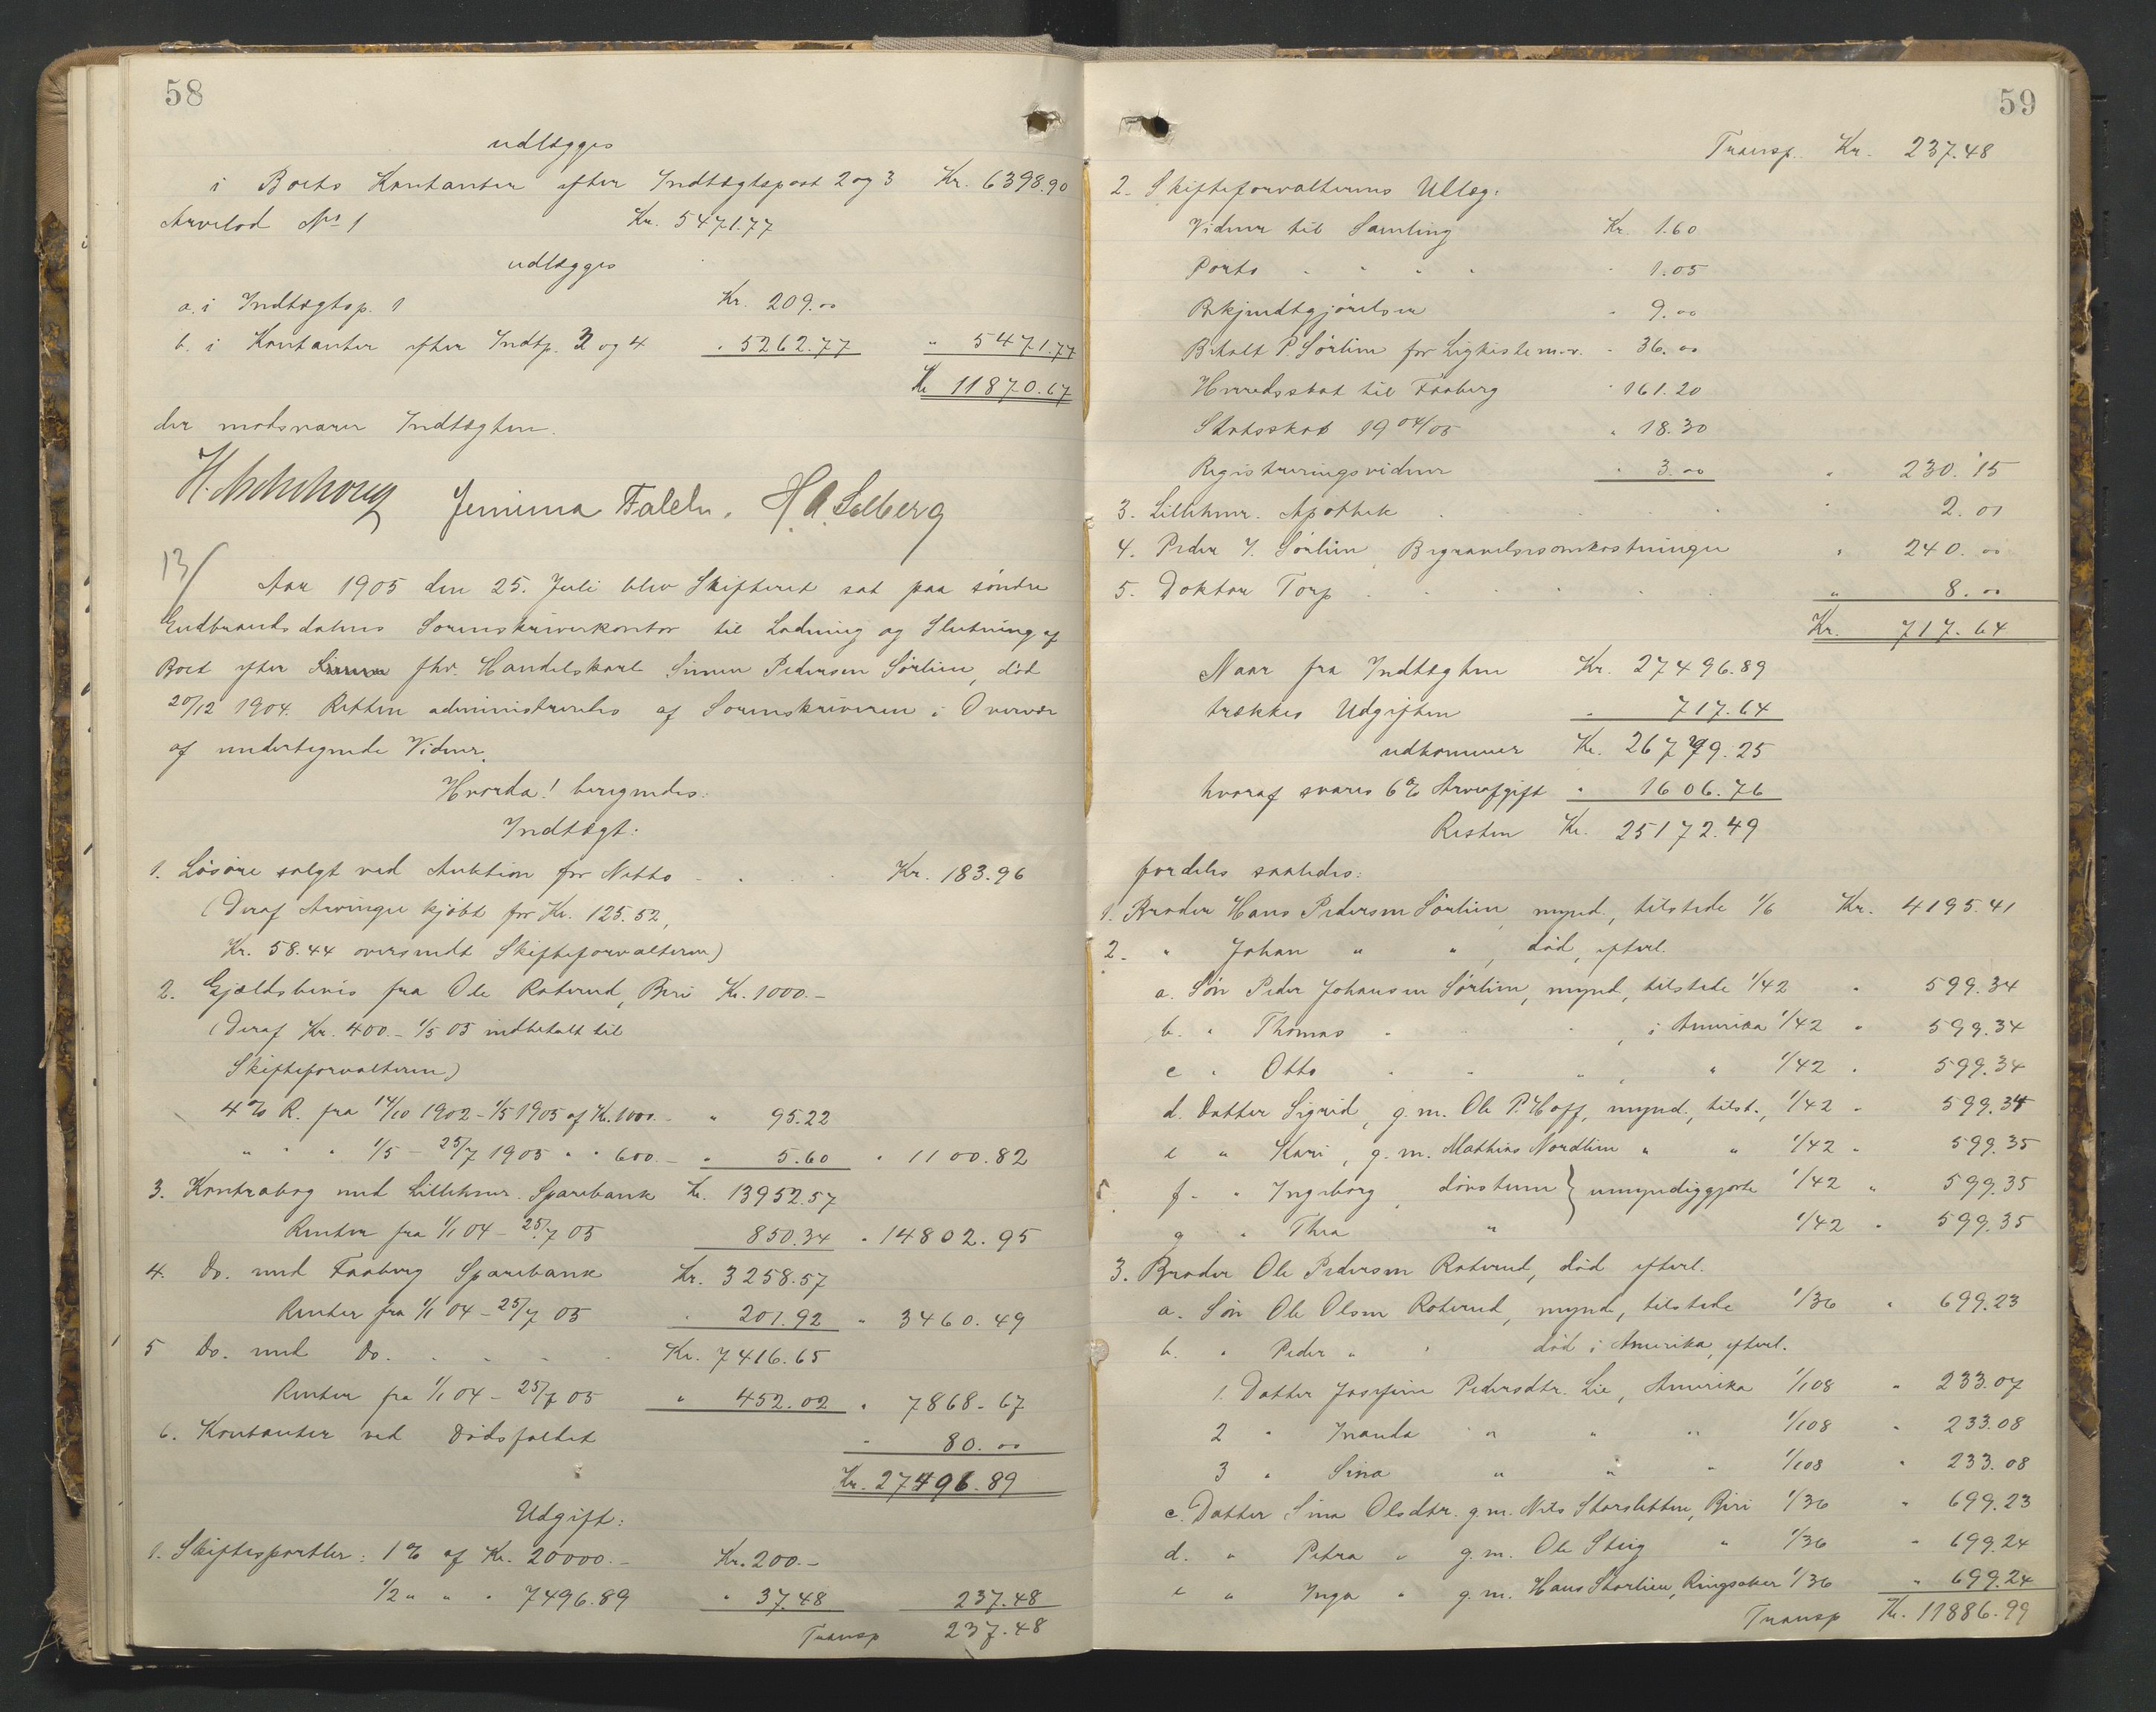 58
udlægges
i Boets Kontanter efter Indtægtspost 2 og 3 Kr. 6398.90
Arvelod No 1 Kr. 5471.77
udlægges
a. i Indtægtsp. 1 Kr. 209.00
b. i Kontanter efter Indtp. 3 og 4 " 5262.77 " 5471.77
Kr 11870.67
der modsvarer Indtægten.
Jemima Faleln. H. A. Solberg
13/
Aar 1905 den 25. Juli blev Skifteret sat paa søndre
Gudbrandsdalens Sorenskriverkontor til Lodning og Slutning af
Boet efter fhv. Handelskarl Simen Pedersen Sørlien, død
20/12 1904. Retten administreredes af Sorenskriveren i Overvær
af undertegnede Vidner.
Hvorda! beregnedes:
Indtægt:
1. Løsøre solgt ved Auktion for Netto Kr. 183.96
(Deraf Arvinger kjøbt for Kr. 125.52,
Kr. 58.44 oversendt Skifteforvalteren)
2. Gjældsbevis fra Ole Roterud, Biri Kr. 1000.-
(Deraf Kr. 400.- 1/5 05 indbetalt til
Skifteforvalteren)
4% R. fra 14/10 1902 - 1/5 1905 af Kr. 1000.- " 95.22
" " " 1/5 - 25/7 1905 " " 600.- " 5.60 " 1100.82
3. Kontrabog med Lillehmr. Sparebank Kr. 13952.57
Renter fra 1/1 04 - 25/7 05 850.34 " 14802.95
4. Do. med Faaberg Sparebank Kr. 3258.57
Renter fra 1/1 04 - 25/7 05 " 201.92 " 3460.49
5 Do. med Do. Kr. 7416.65
Renter fra 1/1 04 - 25/7 05 " 452.02 " 7868.67
6. Kontanter ved Dødsfaldet " 80.00
Kr. 27496.89
Udgift:
1. Skiftesportler: 1% af Kr. 20000.- Kr. 200.-
1/2 " " " 7496.89 " 37.48 237.48
Transp 237.48
59
Transp. Kr. 237.48
2. Skifteforvalterens Utlæg:
Vidner til Samling Kr. 1.60
Porto " 1.05
Bekjendtgjørelser " 9.00
Betalt P. Sørlien for Ligkiste m.v. " 36.00
Herredsskat til Faaberg " 161.20
Statsskat 1904/05 " 18.30
Registreringsvidner " 3.00 " 230.15
3. Lillehmr. Apothek " 2.01
4. Peder J. Sørlien, Begravelsesomkostninger " 240.00
5. Doktor Torp " 8.00
Kr. 717.64
Naar fra Indtægten Kr. 27496.89
trækkes Udgiften " 717.64
udkommer Kr. 26779.25
hvoraf svares 6% Arveafgift " 1606.76
Resten Kr. 25172.49
fordeles saaledes:
1. Broder Hans Pedersen Sørlien, mynd., tilstede 1/6 Kr. 4195.41
2. " Johan " " , død, efterl.
a. Søn Peder Johansen Sørlien, mynd., tilstede 1/42 " 599.34
b. " Thomas " " , i Amerika 1/42 " 599.34
c " Otto " " " , " 1/42 " 599.34
d. Datter Sigrid, g.m. Ole P. Hoff, mynd., tilst., 1/42 " 599.34
e " Kari, g.m. Mathias Nordlien " " 1/42 " 599.35
f. " Ingeborg, døvstum } umyndiggjorte 1/42 " 599.35
g " Thea " 1/42 " 599.35
3. Broder Ole Pedersen Roterud, død efterl.
a. Søn Ole Olsen Roterud, mynd., tilstede 1/36 " 699.23
b. " Peder " " død i Amerika, efterl.
1. Datter Josefine Pedersdtr. Lie, Amerika 1/108 " 233.07
2 " Inanda " " " 1/108 " 233.08
3 " Sina " " " 1/108 " 233.08
c. Datter Sina Olsdtr. g.m. Nils Storsletten, Biri 1/36 " 699.23
d. " Petra " g.m. Ole Steig " 1/36 " 699.24
e " Inga " g.m. Hans Storlien, Ringsaker 1/36 " 699.24
Transp Kr. 11886.99